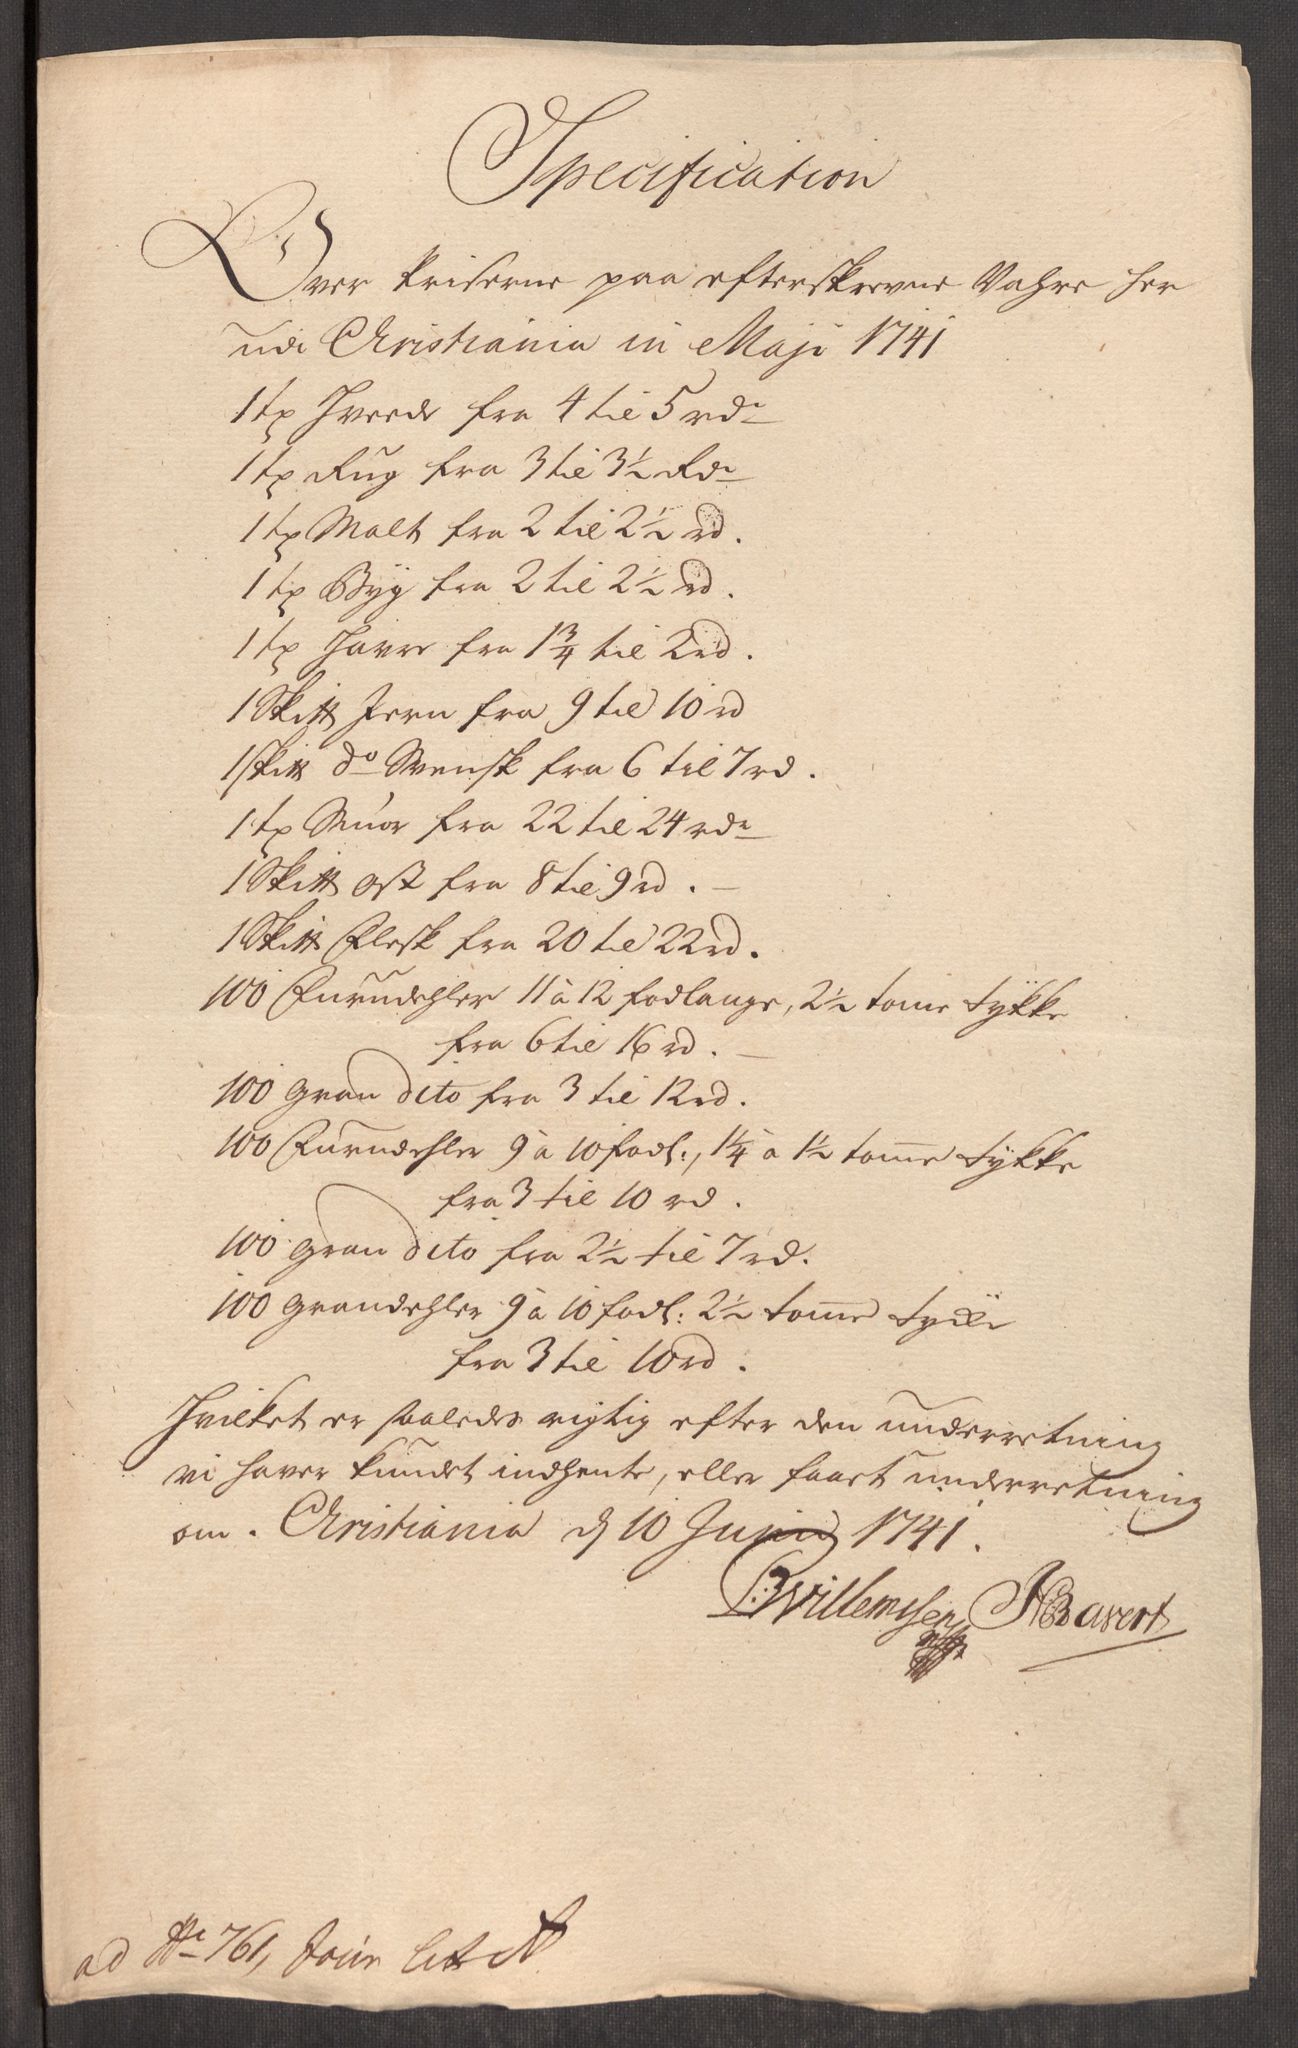 Specification
Over Priserne paa efterskrevne Vahre her
udi Christiania in Maji 1741
1 tr Hvede fra 4 til 5 rdr
1 tr Rug fra 3 til 3½ Rdr
1 tr Malt fra 2 til 2½ rd.
1 tr Byg fra 2 til 2½ rd.
1 tr Havre fra 1¾ til 2 rd.
1 Skltt Jern fra 9 til 10 rd
1 skltt do Svensk fra 6 til 7 rd.
1 tr Smør fra 22 til 24 rdr
1 Skltt ost fra 8 til 9 rd. –
1 Skltt Flesk fra 20 til 22 rd.
100 Furudehler 11 à 12 fodlange, 2½ tome tykke
fra 6 til 16 rd. –
100 gran dito fra 3 til 12 rd.
100 Furudehler 9 à 10 fodl:, 1¼ a 1½ tome tykke
fra 3 til 10 rd.
100 gran dito fra 2½ til 7 rd.
100 grandehler 9 à 10 fodl: 2½ tome tycke
fra 3 til 10 rd.
Hvilket er saaledes rigtig efter den underretning
vi haver kundet indhente, eller faaet underretning
om. Christiania d 10 Junii 1741.
Willemssen Bavert
ad No 761, Jour Litt A